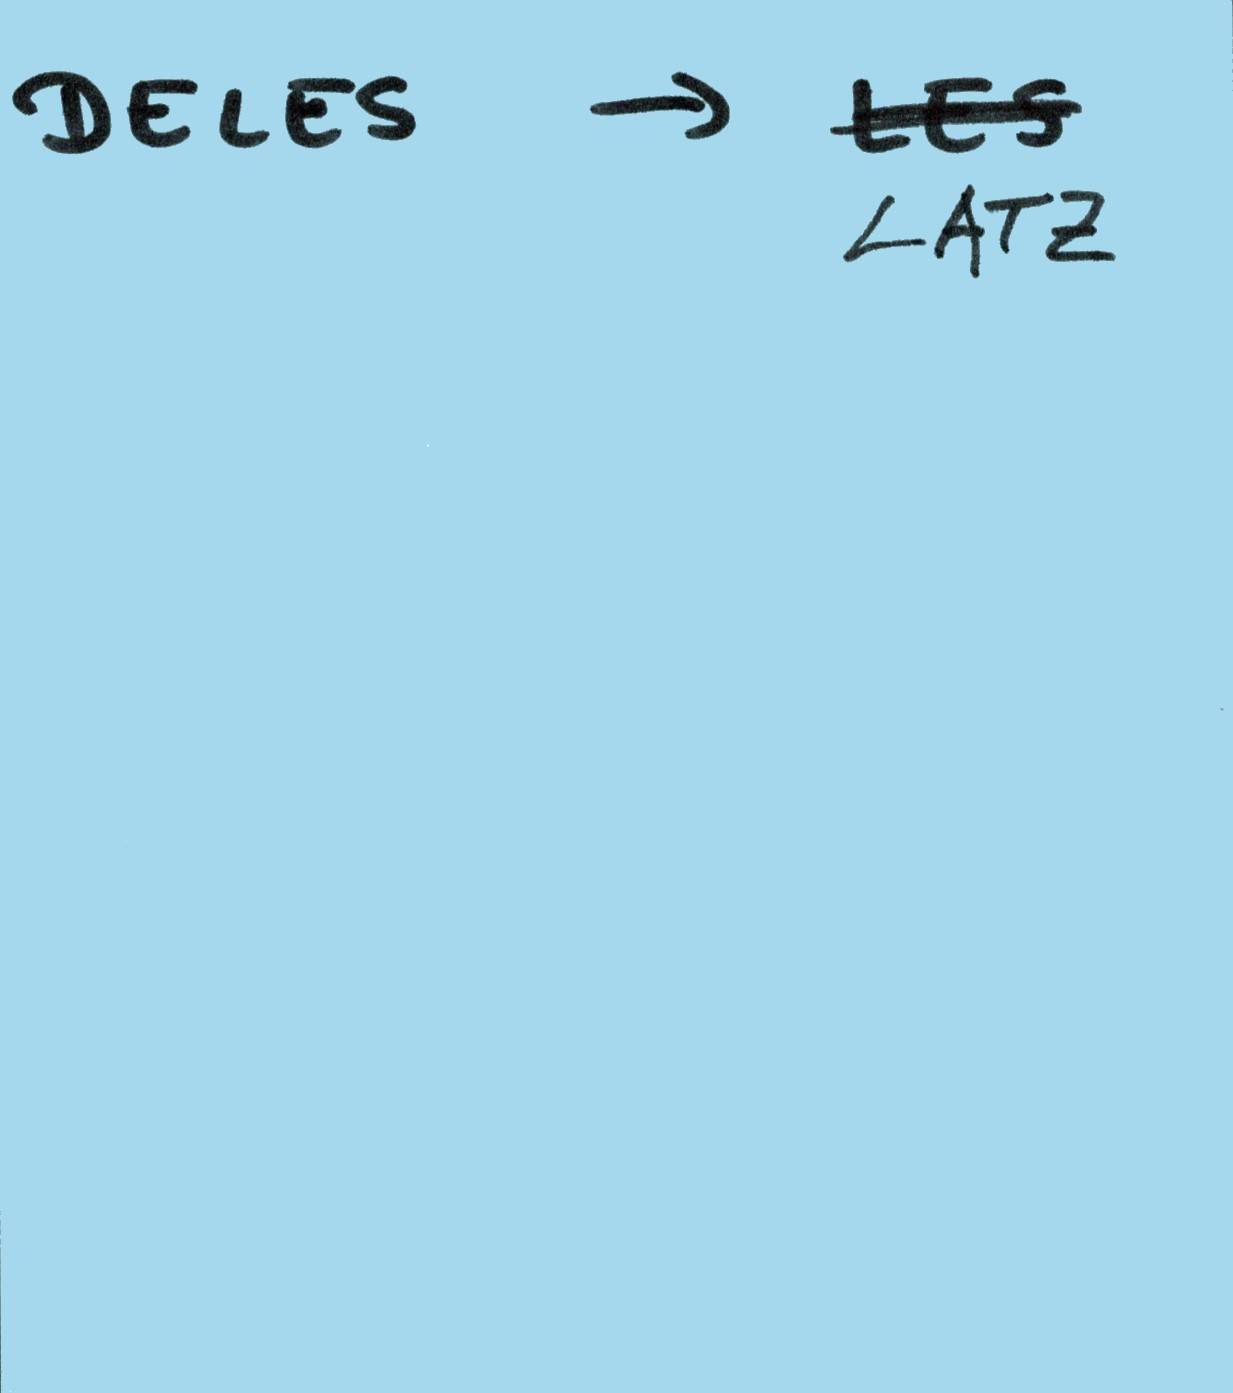 DELES → LES
LATZ